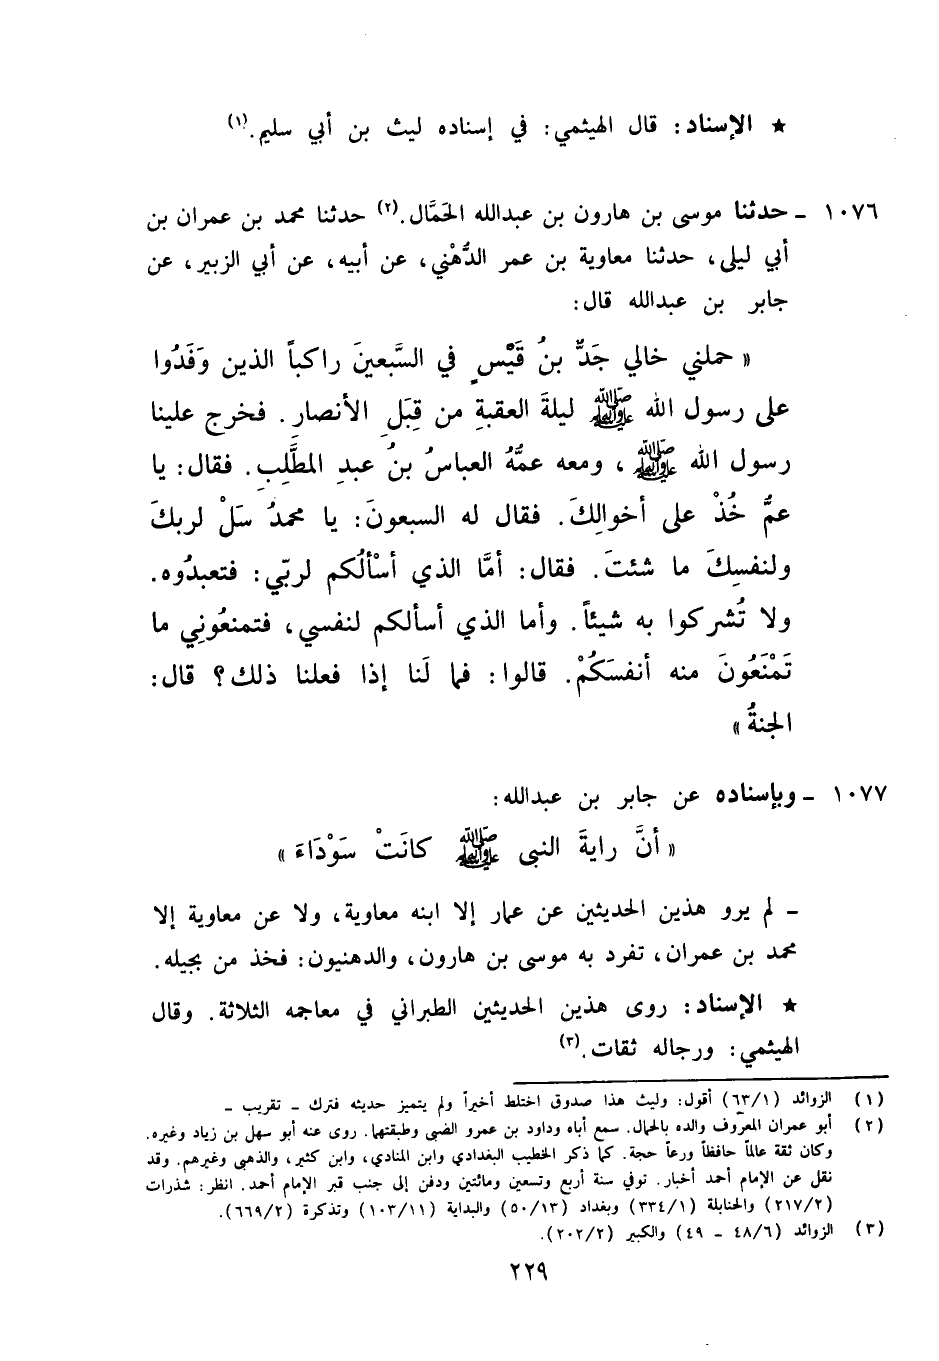 ★ الإسناد: قال الهيثمي: في إسناده ليث بن أبي سليم.(١)
١٠٧٦ ـ حدثنا موسى بن هارون بن عبدالله الحَمَّال.(٢) حدثنا محمد بن عمران بن
أبي ليلى، حدثنا معاوية بن عمر الدُّهْني، عن أبيه، عن أبي الزبير، عن
جابر بن عبدالله قال:
« حملني خالي جَدُّ بنُ قَيْسٍ في السَّبعينَ راكباً الذين وَفَدُوا
على رسول الله ﷺ ليلةَ العقبةِ من قِبَلِ الأنصارِ. فخرج علينا
رسول الله ﷺ، ومعه عمُّهُ العباسُ بنُ عبدِ المطَّلِبِ. فقال: يا
عمُّ خُذْ على أخوالِكَ. فقال له السبعونَ: يا محمدُ سَلْ لربكَ
ولنفسِكَ ما شئتَ. فقال: أمَّا الذي أسْألُكم لربّي: فتعبدُوه.
ولا تُشركوا به شيئاً. وأما الذي أسألكم لنفسي، فتمنعُونِي ما
تَمْنَعُونَ منه أنفسَكُمْ. قالوا: فما لَنا إذا فعلنا ذلك؟ قال:
الجنةُ »
١٠٧٧ ـ وبإسناده عن جابر بن عبدالله:
« أنَّ رايةَ النبى ﷺ كانَتْ سَوْدَاءَ »
ـ لم يرو هذين الحديثين عن عمار إلا ابنه معاوية، ولا عن معاوية إلا
محمد بن عمران، تفرد به موسى بن هارون، والدهنيون: فخذ من بجيله.
★ الإسناد: روى هذين الحديثين الطبراني في معاجمه الثلاثة. وقال
الهيثمي: ورجاله ثقات.(٣)
(١) الزوائد (٦٣/١) أقول: وليث هذا صدوق اختلط أخيراً ولم يتميز حديثه فترك ـ تقريب ـ
(٢) أبو عمران المعروف والده بالحمال. سمع أباه وداود بن عمرو الضبى وطبقتهما. روى عنه أبو سهل بن زياد وغيره.
وكان ثقة عالماً حافظاً ورعاً حجة. كما ذكر الخطيب البغدادي وابن المنادي، وابن كثير، والذهبى وغيرهم. وقد
نقل عن الإمام أحمد أخبار. توفي سنة أربع وتسعين ومائتين ودفن إلى جنب قبر الإمام أحمد. انظر: شذرات
(٢١٧/٢) والحنابلة (٣٣٤/١) وبغداد (٥٠/١٣) والبداية (١٠٣/١١) وتذكرة (٦٦٩/٢).
(٣) الزوائد (٤٨/٦ ـ ٤٩) والكبير (٢٠٢/٢).
٢٢٩